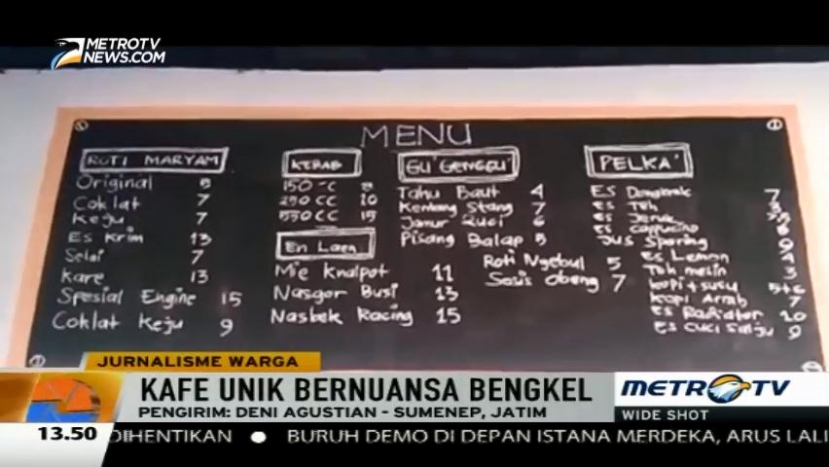 METROTV
NEWS.COM
MENU
ROTI MARYAM
Original 5
Coklat 7
Keju 7
Es Krim 13
Selai 7
Kare 13
Spesial Engine 15
Coklat Keju 9
KEBAB
150 CC 8
250 CC 10
550 CC 15
En Laen
Mie Knalpot 11
Nasgor Busi 13
Nasbek Racing 15
GU'GENGGU'
Tahu Baut 4
Kentang Stang 7
Jamur Ruci 6
Pisang Balap 5
Roti Ngebul 5
Sosis obeng 7
PELKA'
Es Dongkrak 7
Es Teh 3
Es Jeruk
Es cappucino 6
Jus Sparing 9
Es Lemon 4
Teh mesin 3
kopi + susu 5+6
kopi Arab 7
Es Radiator 10
Es cuci salju 9
JURNALISME WARGA
KAFE UNIK BERNUANSA BENGKEL
PENGIRIM: DENI AGUSTIAN - SUMENEP, JATIM
METRO TV
WIDE SHOT
13.50 DIHENTIKAN ● BURUH DEMO DI DEPAN ISTANA MERDEKA, ARUS LALI